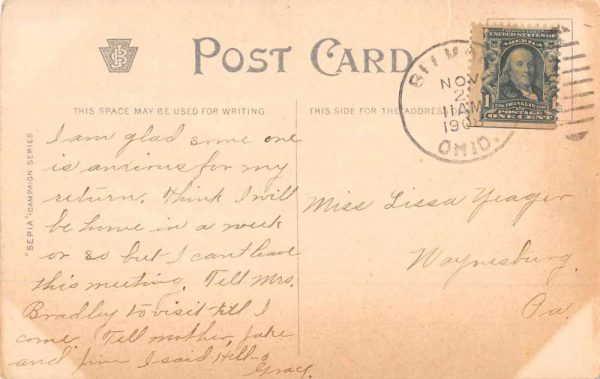 POST CARD
THIS SPACE MAY BE USED FOR WRITING
THIS SIDE FOR THE ADDRESS
"SEPIA" CAMPAIGN SERIES
NOV
2
11 AM
190
OHIO.
UNITED STATES OF
1 FRANKLIN 1
POSTAGE
ONE CENT
I am glad some one
is anxious for my
return. Think I will
be home in a week
or so but I can't leave
this meeting. Tell Mrs.
Bradley to visit till I
come. Tell mother, Jake
and Jim I said Hell-o
Grace.
Miss Lissa Yeager
Waynesburg,
Pa.